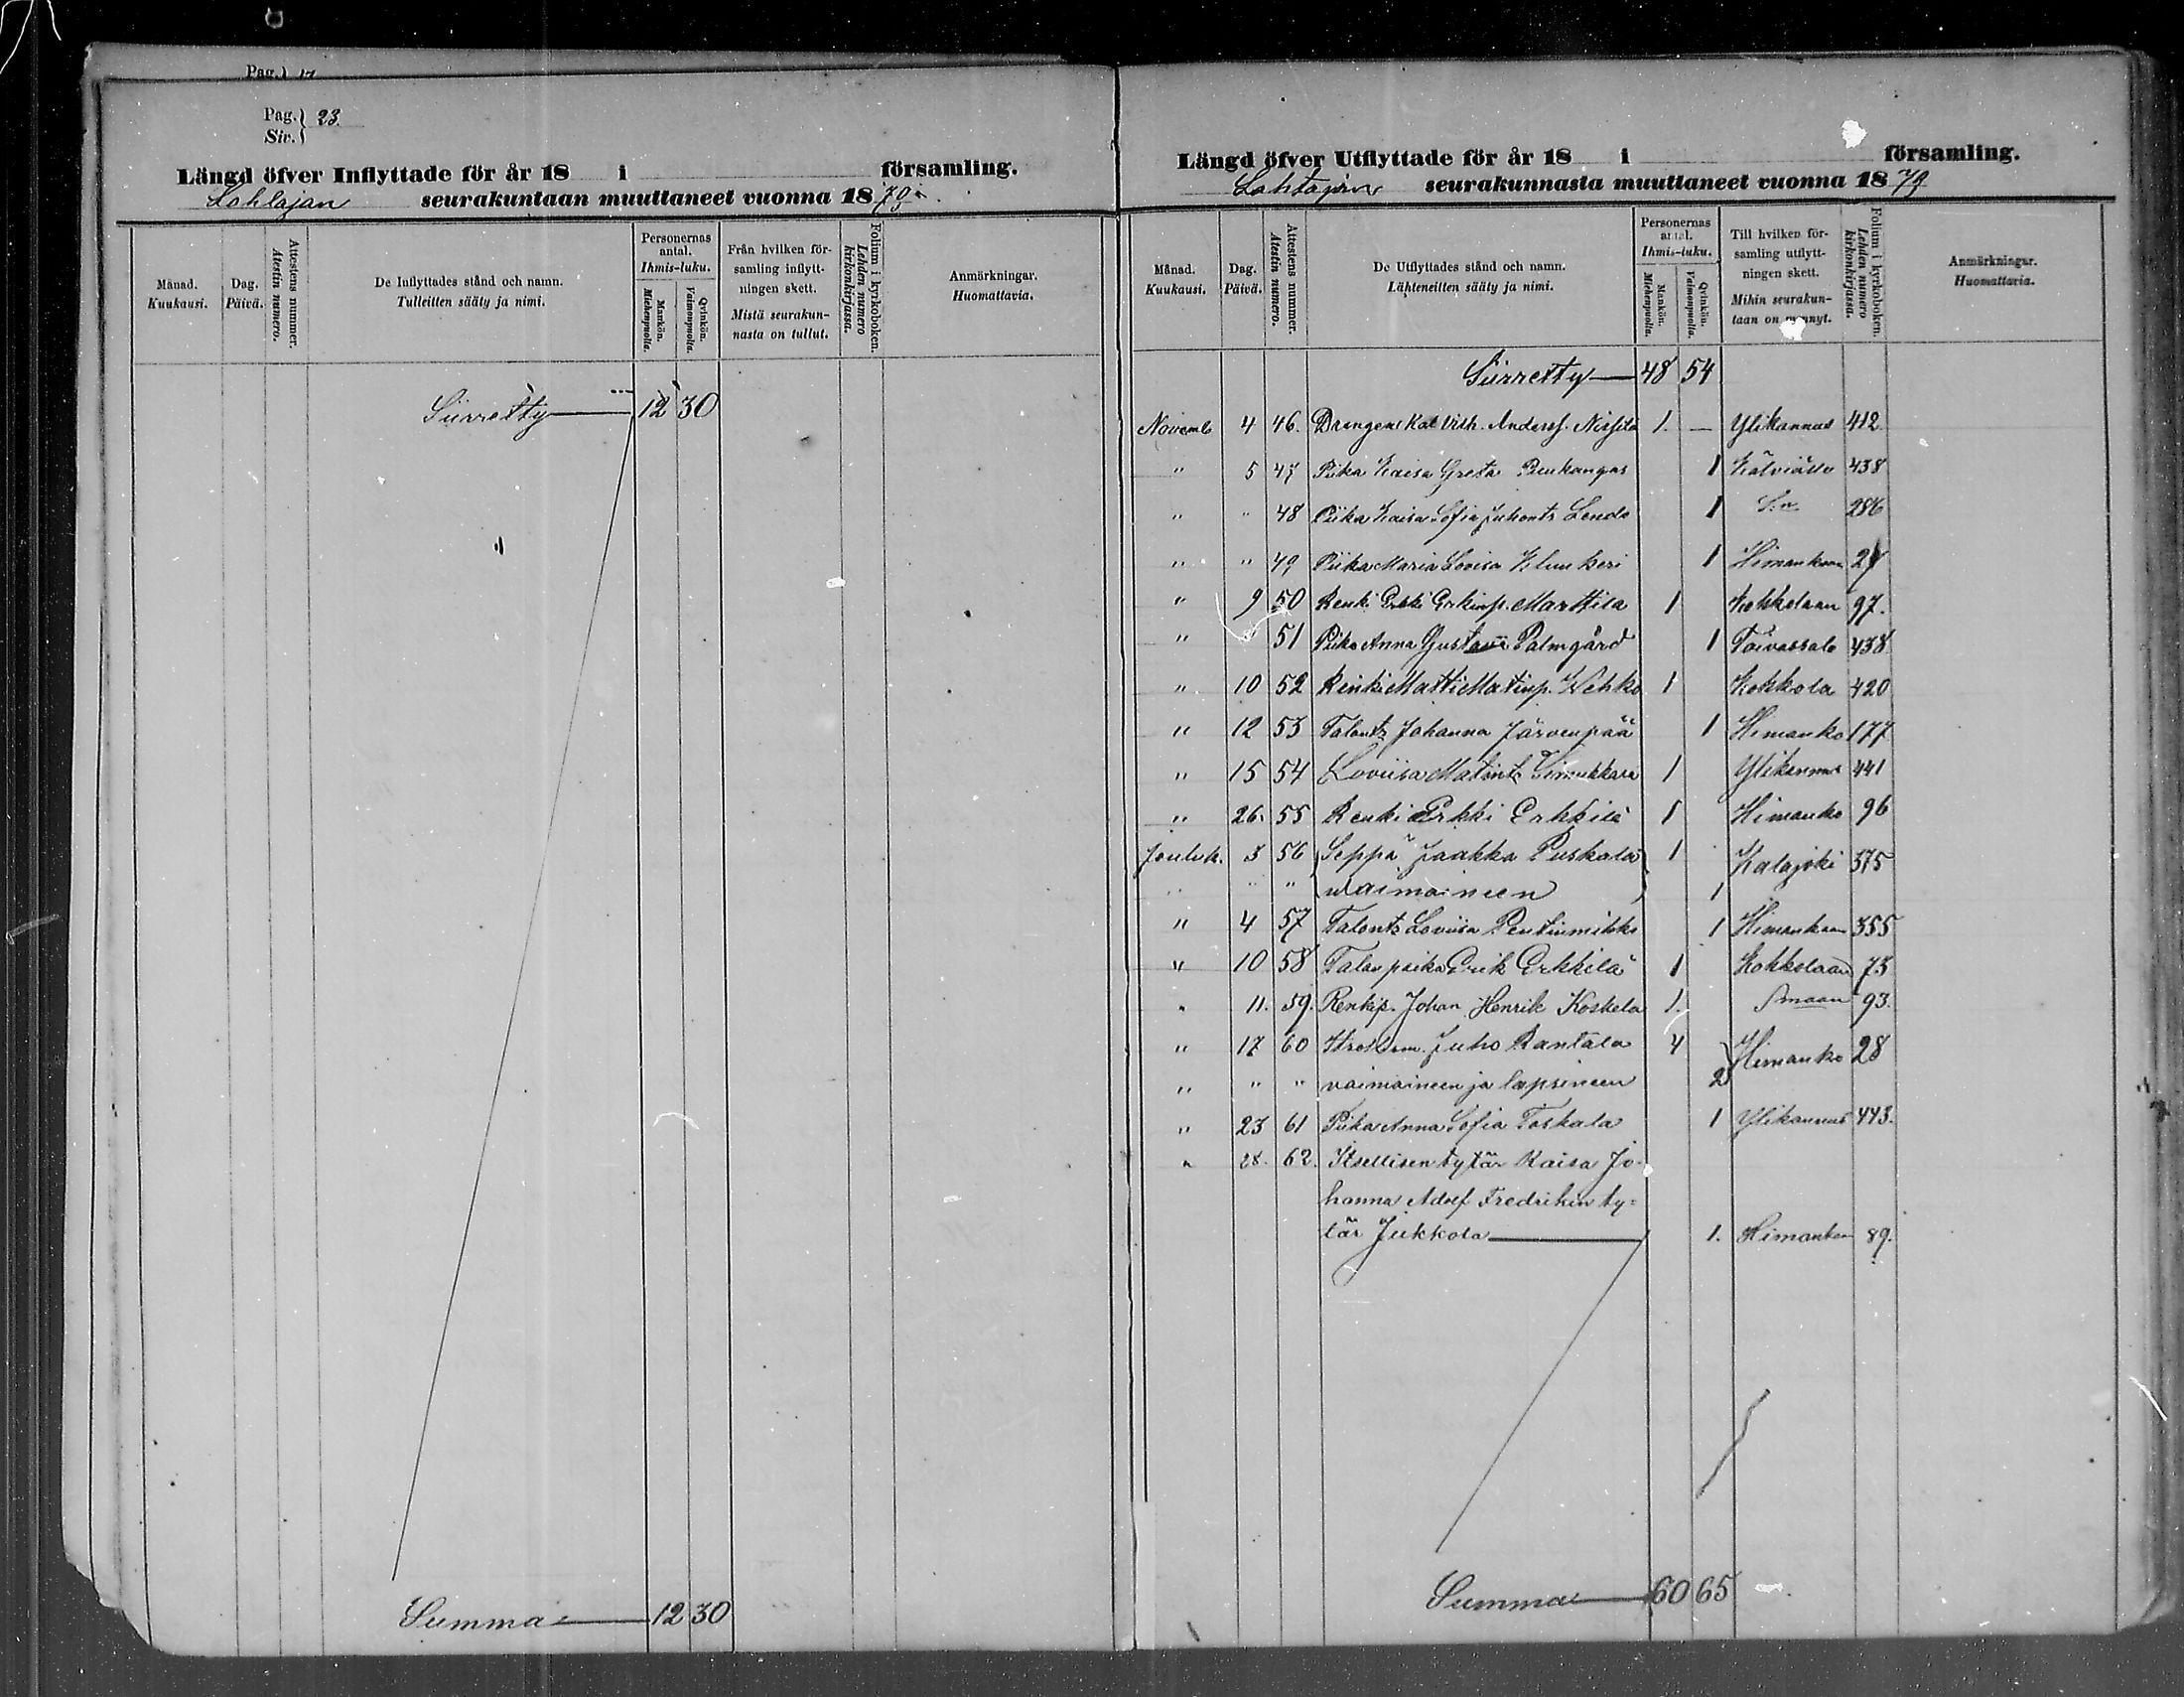 Pag. 23.
Siv.
Längd öfver Inflyttade för år 18 i församling.
Lohtajan seurakuntaan muuttaneet vuonna 1879
Månad. Kuukausi.
Dag. Päivä.
Attestens nummer. Atestin numero.
De Inflyttades stånd och namn. Tulleitten sääty ja nimi.
Personernas antal. Ihmis-luku.
Mankön. Miehenpuolta.
Qvinkön. Vaimonpuolta.
Från hvilken församling inflyttningen skett.
Mistä seurakunnasta on tullut.
Folium i kyrkoboken. Lehden numero kirkonkirjassa.
Anmärkningar. Huomattavia.
Siirretty 12 30
Summa 12 30
Längd öfver Utflyttade för år 18 i församling.
Lohtajan seurakunnasta muuttaneet vuonna 1879
Månad. Kuukausi.
Dag. Päivä.
Attestens nummer. Atestin numero.
De Utflyttades stånd och namn. Lähteneitten sääty ja nimi.
Personernas antal. Ihmis-luku.
Mankön. Miehenpuolta.
Qvinkön. Vaimonpuolta.
Till hvilken församling utflyttningen skett.
Mihin seurakuntaan on mennyt.
Folium i kyrkoboken. Lehden numero kirkonkirjassa.
Anmärkningar. Huomattavia.
Siirretty 48 54
Novemb 4 46. Drengen Kal Vilh. Anderss. Nissilä 1. — Ylikannus 412
" 5 47 Piika Kaisa Greta Peukangas 1 Kälviälle 438
" " 48 Piika Kaisa Sofia Juhont 1 S:n 286
" " 49 Piika Maria Lovisa 1 Himankaan
" 9 50 Renki Erkki Erkinp. Marttila 1 Kokkolaan 97.
" " 51 Piika Anna Gustava Palmgård 1 Toivassalo 438
" 10 52 Renki Matti Matinp. Wehko 1 Kokkola 420
" 12 53 Talontr Johanna Järvenpää 1 Himanko 177
" 15 54 Loviisa Matintr 1 Ylikannus 441
" 26. 55 Renki Erkki Erkkilä 1 Himanko 96
Jouluk. 3 56 Seppä Jaakka Puskala 1 Kalajoki 375
" " " waimoineen 1
" 4 57 Talontr Loviisa Pentinmikko 1 Himankaan 355
" 10 58 Talonpoika Erik Erkkilä 1 Kokkolaan 73
" 11. 59. Renkip. Johan Henrik Koskela 1. Smaan 93.
" 17 60 Juho Rantala 4 Himanko 28
" " " vaimoineen ja lapsineen 2
" 23 61 Piika Anna Sofia Toskala 1 Ylikannus 443.
" 28. 62. Itsellisen tytär Kaisa Jo-
hanna Adolf Fredrikin ty=
tär Jukkola 1. Himankaan 89.
Summa 60 65